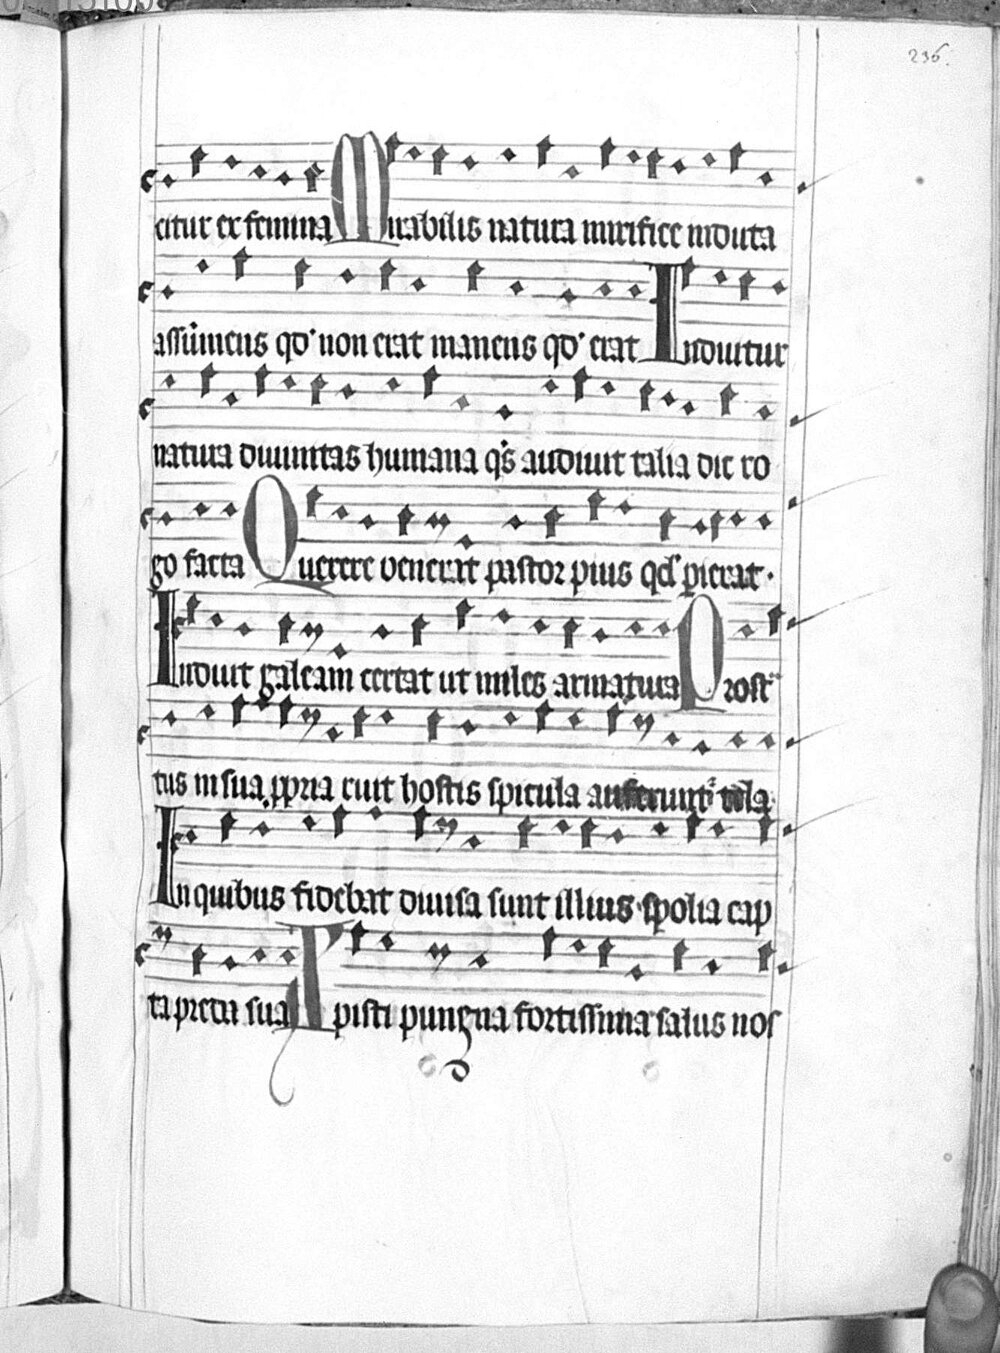 236.
citur ex femina Mirabilis natura mirifice induta
assūmens qd' non erat manens qd' erat Induitur
natura diuinitas humana q̄s audiuit talia dic ro
go facta Querere venerat pastor pius qd' perierat.
Induit galeam certat ut miles armatura Prost
tus in sua ppria ruit hostis spicula auferunt tela
In quibus fidebat diuisa sunt illius spolia cap
ta preda sua Xpisti pungna fortissima salus nos